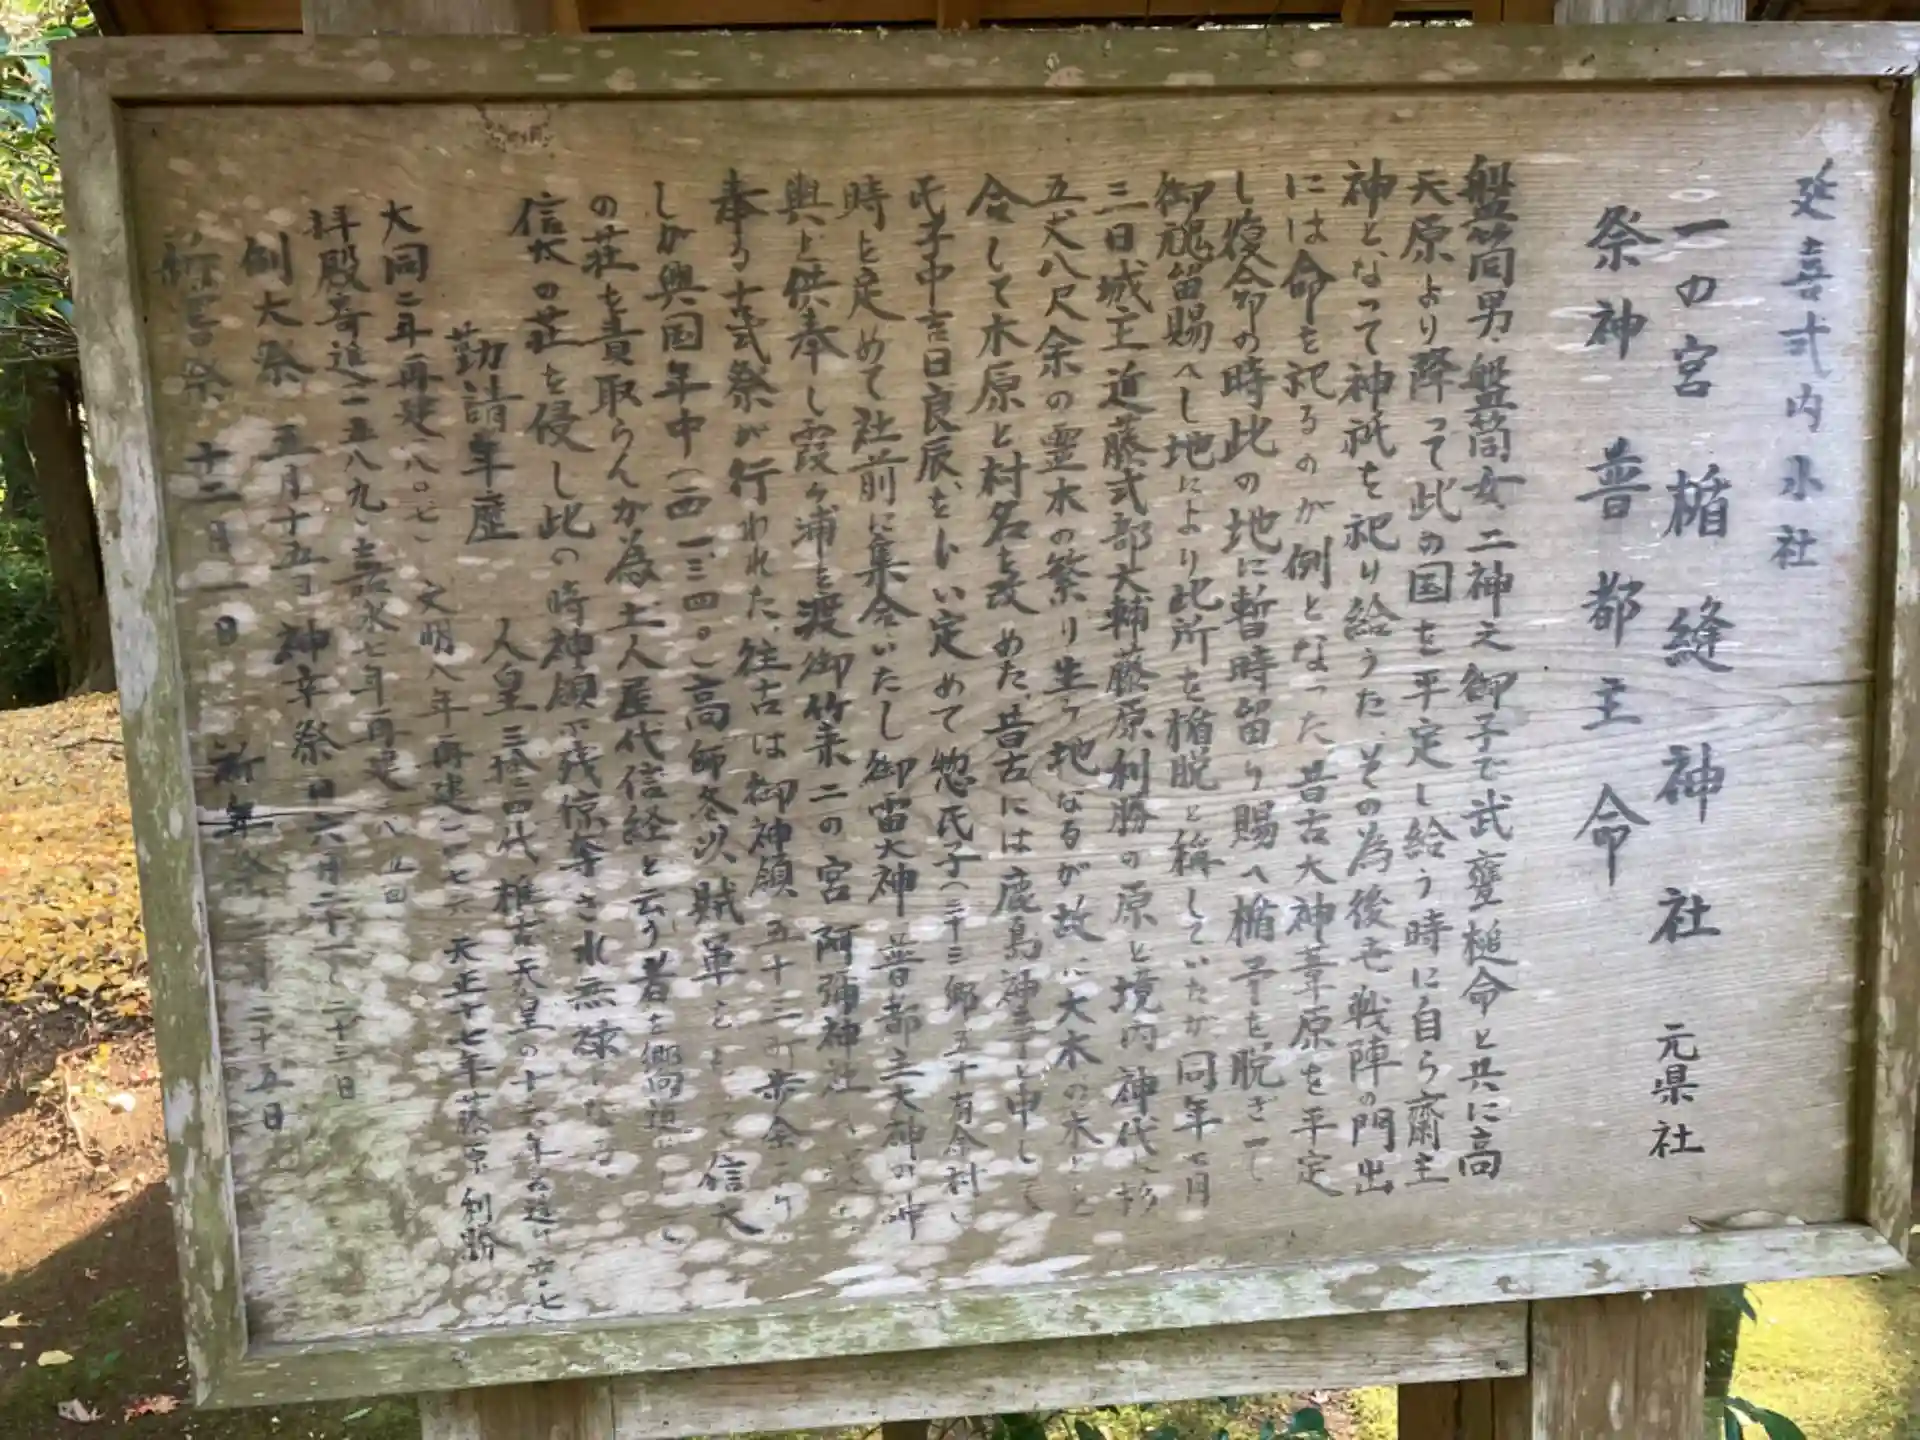 延喜式内小社
一の宮 楯縫神社 元県社
祭神 普都主命
盤筒男、盤筒女、二神之御子で武甕槌命と共に高
天原より降って此の国を平定し給う時に自ら齋主
神となって神祇を祀り給うた、その為後世戦陣の門出
には命を祀るのが例となった 昔古大神葦原を平定
し復命の時此の地に暫時留り賜へ楯予を脱ぎ一て
御魂留賜へし地により此所を楯脱と稱していたが同年七月
三日、城主近藤式部大輔藤原利勝の原と境内神代、杉
五丈八尺余の霊木の繁り生う地なるが故に大木の木と
合して木原と村名を改めた、昔古には鹿島神子と申して
氏子中吉日良辰、をトい定めて惣氏子(三十三郷五十有余村)
時を定めて社前に集合いたし御雷大神 普都主大神の神
輿と供奉し霞ヶ浦を渡御竹来二の宮 阿彌神社
奉る古式祭が行われた、往古は御神領 五十三町歩余
しが興国年中(一三四〇)高師冬以賊軍をと 信太
の荘を責取らんが為土人屋代信経と云う者を郷向道
信太の荘を侵し此の時神領 残掠奪され無禄となる。
勤請年歴 人皇三拾三代 推古天皇の十六年 六〇七
大同二年再建(八〇七) 文明八年再建 一四七六 天正十七年藤原利勝
拝殿寄進(一五八九) 嘉永七年再建 一八五四
例大祭 五月十五日 神幸祭 日六月二十一、二十三日
新嘗祭 十二月一日 祈年祭 二月二十五日